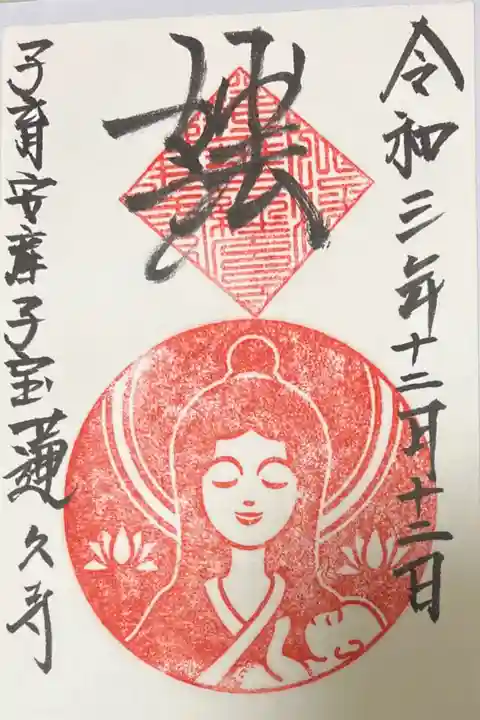 令和三年十二月十二日
妙法
子育安産子宝蓮久寺